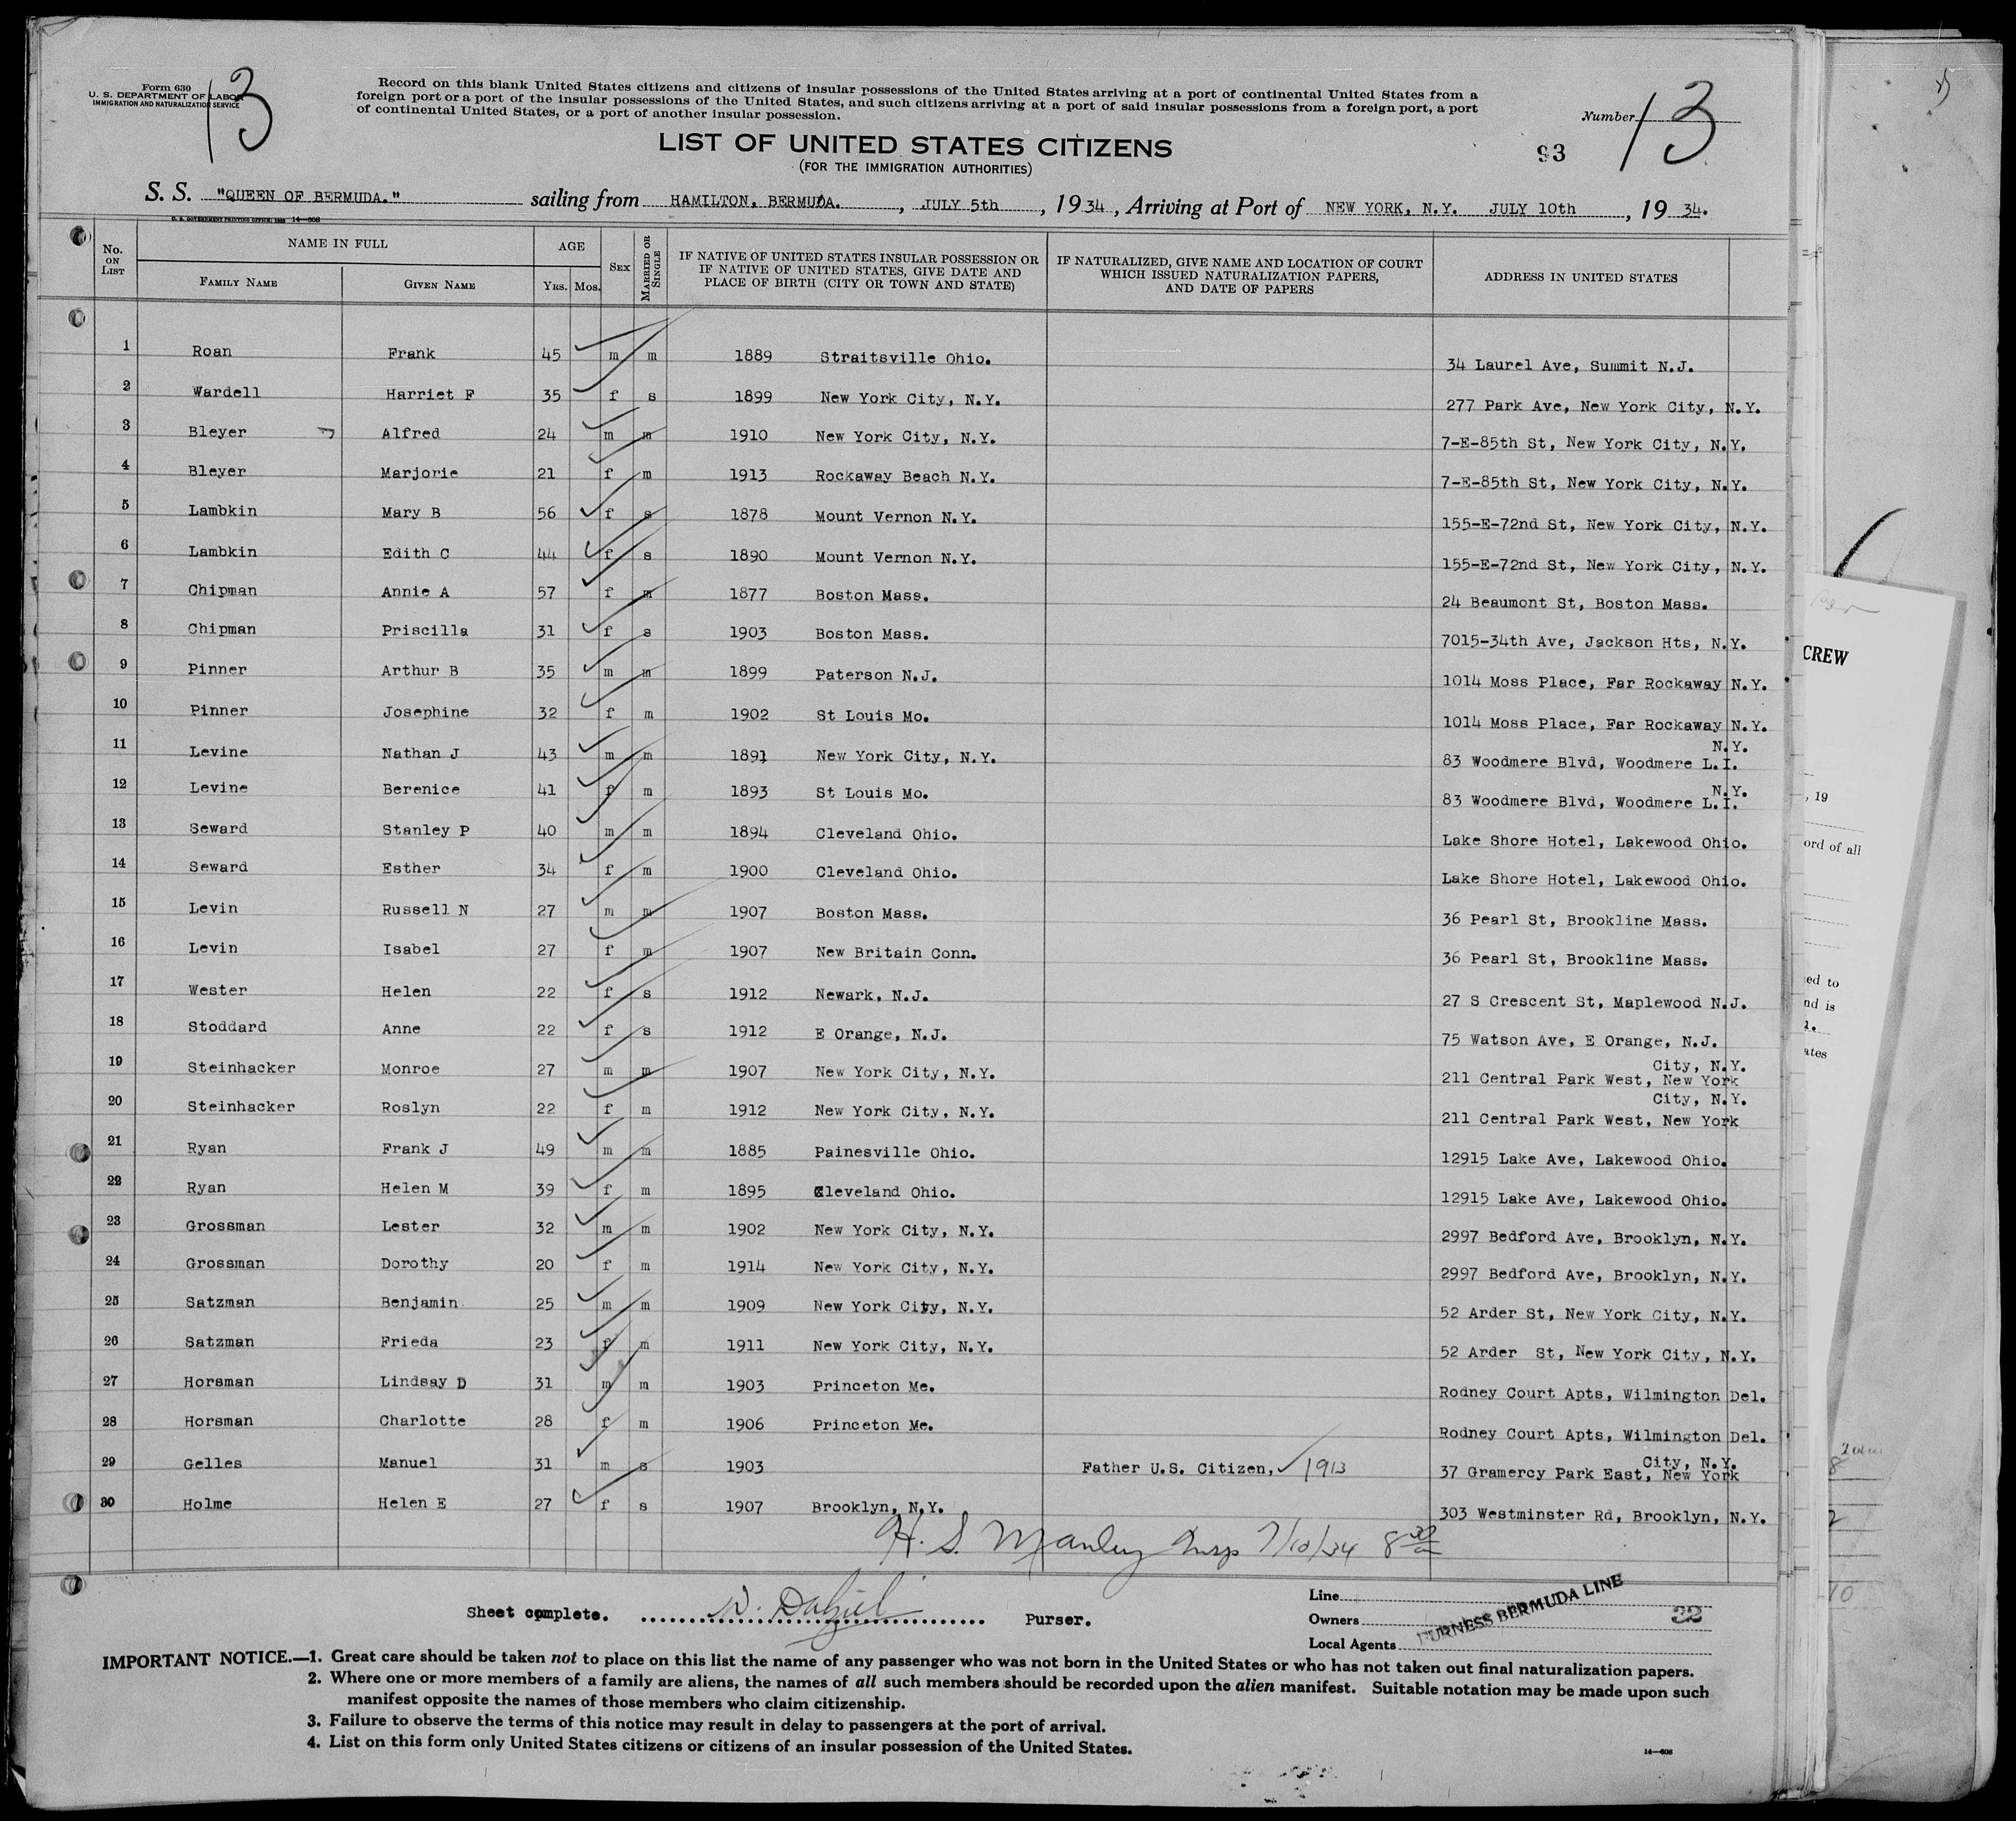 Form 630
U. S. DEPARTMENT OF LABOR
IMMIGRATION AND NATURALIZATION SERVICE
13
Record on this blank United States citizens and citizens of insular possessions of the United States arriving at a port of continental United States from a
foreign port or a port of the insular possessions of the United States, and such citizens arriving at a port of said insular possessions from a foreign port, a port
of continental United States, or a port of another insular possession.
Number 13
LIST OF UNITED STATES CITIZENS
(FOR THE IMMIGRATION AUTHORITIES)
93
S. S. "QUEEN OF BERMUDA." sailing from HAMILTON, BERMUDA. , JULY 5th , 19 34 , Arriving at Port of NEW YORK, N.Y. JULY 10th , 19 34.
U. S. GOVERNMENT PRINTING OFFICE: 14—608
No. ON LIST NAME IN FULL AGE SEX MARRIED OR SINGLE IF NATIVE OF UNITED STATES INSULAR POSSESSION OR IF NATIVE OF UNITED STATES, GIVE DATE AND PLACE OF BIRTH (CITY OR TOWN AND STATE) IF NATURALIZED, GIVE NAME AND LOCATION OF COURT WHICH ISSUED NATURALIZATION PAPERS, AND DATE OF PAPERS ADDRESS IN UNITED STATES
FAMILY NAME GIVEN NAME YRS. MOS.
1 Roan Frank 45 m m 1889 Straitsville Ohio. 34 Laurel Ave, Summit N.J.
2 Wardell Harriet F 35 f s 1899 New York City, N.Y. 277 Park Ave, New York City, N.Y.
3 Bleyer Alfred 24 m m 1910 New York City, N.Y. 7-E-85th St, New York City, N.Y.
4 Bleyer Marjorie 21 f m 1913 Rockaway Beach N.Y. 7-E-85th St, New York City, N.Y.
5 Lambkin Mary B 56 f s 1878 Mount Vernon N.Y. 155-E-72nd St, New York City, N.Y.
6 Lambkin Edith C 44 f s 1890 Mount Vernon N.Y. 155-E-72nd St, New York City, N.Y.
7 Chipman Annie A 57 f m 1877 Boston Mass. 24 Beaumont St, Boston Mass.
8 Chipman Priscilla 31 f s 1903 Boston Mass. 7015-34th Ave, Jackson Hts, N.Y.
9 Pinner Arthur B 35 m m 1899 Paterson N.J. 1014 Moss Place, Far Rockaway N.Y.
10 Pinner Josephine 32 f m 1902 St Louis Mo. 1014 Moss Place, Far Rockaway N.Y.
11 Levine Nathan J 43 m m 1891 New York City, N.Y. 83 Woodmere Blvd, Woodmere L.I. N.Y.
12 Levine Berenice 41 f m 1893 St Louis Mo. 83 Woodmere Blvd, Woodmere L.I. N.Y.
13 Seward Stanley P 40 m m 1894 Cleveland Ohio. Lake Shore Hotel, Lakewood Ohio.
14 Seward Esther 34 f m 1900 Cleveland Ohio. Lake Shore Hotel, Lakewood Ohio.
15 Levin Russell N 27 m m 1907 Boston Mass. 36 Pearl St, Brookline Mass.
16 Levin Isabel 27 f m 1907 New Britain Conn. 36 Pearl St, Brookline Mass.
17 Wester Helen 22 f s 1912 Newark, N.J. 27 S Crescent St, Maplewood N.J.
18 Stoddard Anne 22 f s 1912 E Orange, N.J. 75 Watson Ave, E Orange, N.J.
19 Steinhacker Monroe 27 m m 1907 New York City, N.Y. 211 Central Park West, New York City, N.Y.
20 Steinhacker Roslyn 22 f m 1912 New York City, N.Y. 211 Central Park West, New York City, N.Y.
21 Ryan Frank J 49 m m 1885 Painesville Ohio. 12915 Lake Ave, Lakewood Ohio.
22 Ryan Helen M 39 f m 1895 Cleveland Ohio. 12915 Lake Ave, Lakewood Ohio.
23 Grossman Lester 32 m m 1902 New York City, N.Y. 2997 Bedford Ave, Brooklyn, N.Y.
24 Grossman Dorothy 20 f m 1914 New York City, N.Y. 2997 Bedford Ave, Brooklyn, N.Y.
25 Satzman Benjamin 25 m m 1909 New York City, N.Y. 52 Arder St, New York City, N.Y.
26 Satzman Frieda 23 f m 1911 New York City, N.Y. 52 Arder St, New York City, N.Y.
27 Horsman Lindsay D 31 m m 1903 Princeton Me. Rodney Court Apts, Wilmington Del.
28 Horsman Charlotte 28 f m 1906 Princeton Me. Rodney Court Apts, Wilmington Del.
29 Gelles Manuel 31 m s 1903 Father U.S. Citizen, 1913 37 Gramercy Park East, New York City, N.Y.
30 Holme Helen E 27 f s 1907 Brooklyn, N.Y. 303 Westminster Rd, Brooklyn, N.Y.
H. S. Manley Insp 7/10/34 8 30
Sheet complete. Purser.
Line
Owners FURNESS BERMUDA LINE 32
Local Agents
IMPORTANT NOTICE.—1. Great care should be taken not to place on this list the name of any passenger who was not born in the United States or who has not taken out final naturalization papers.
2. Where one or more members of a family are aliens, the names of all such members should be recorded upon the alien manifest. Suitable notation may be made upon such
manifest opposite the names of those members who claim citizenship.
3. Failure to observe the terms of this notice may result in delay to passengers at the port of arrival.
4. List on this form only United States citizens or citizens of an insular possession of the United States.
14—608
CREW
, 19
ord of all
ed to
nd is
ates